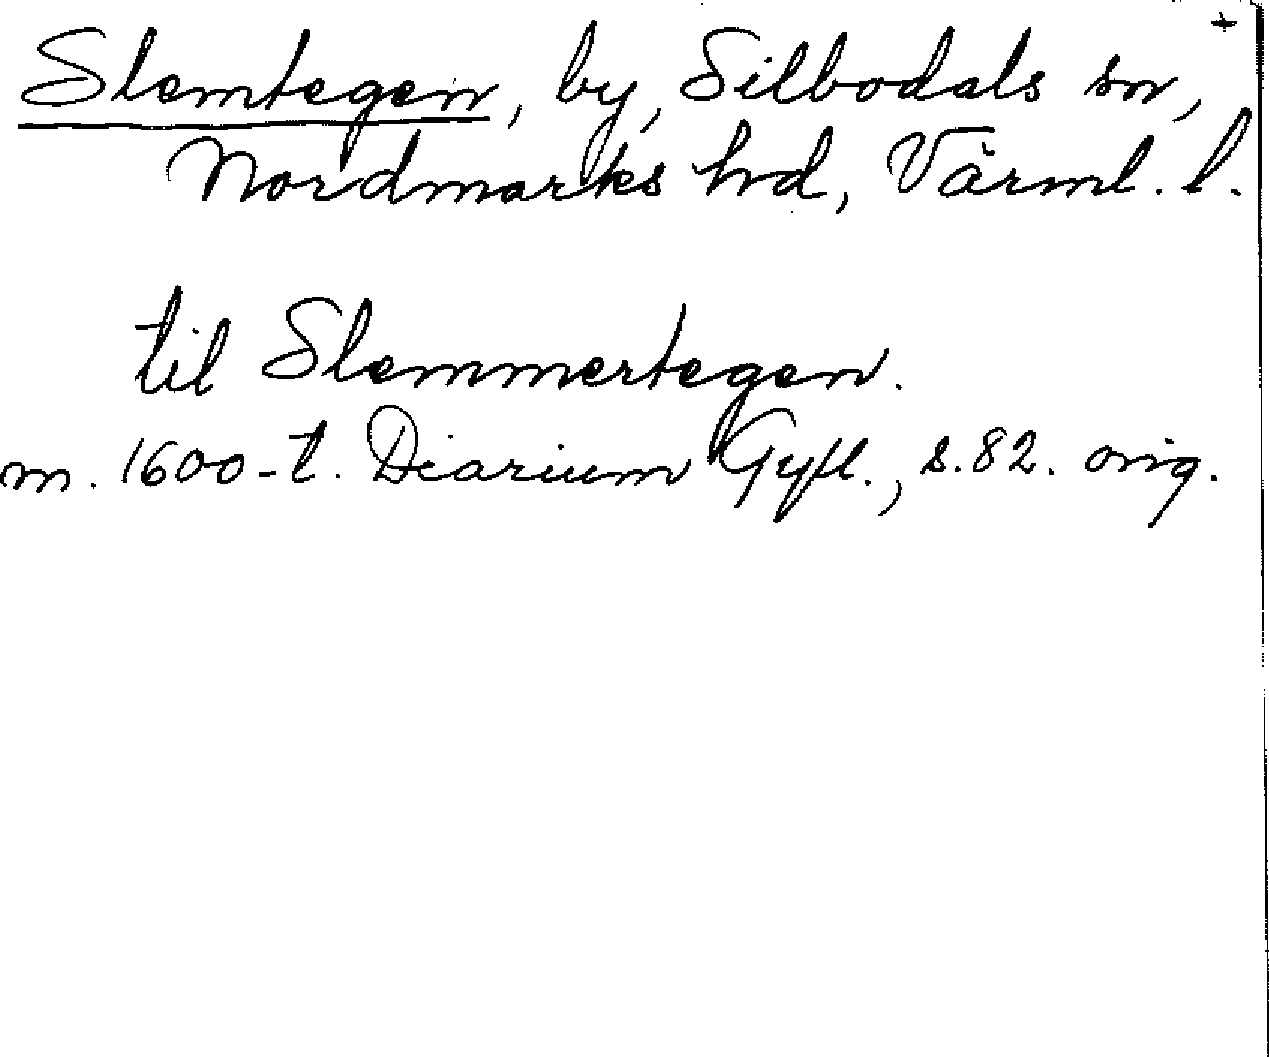 +
Slemtegen, by, Silbodals sn,
Nordmarks hd, Värml. l.
til Slemmertegen.
m. 1600-t. Diarium Gyll., s. 82. orig.